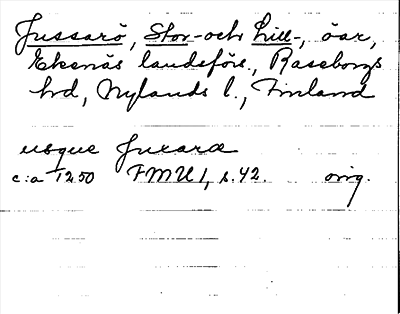 Jussarö, Stor- och Lill-, öar,
Ekenäs landsförs., Raseborgs
hrd, Nylands l., Finland
usque Juxaræ
c:a 1250 FMU 1, s. 42. orig.